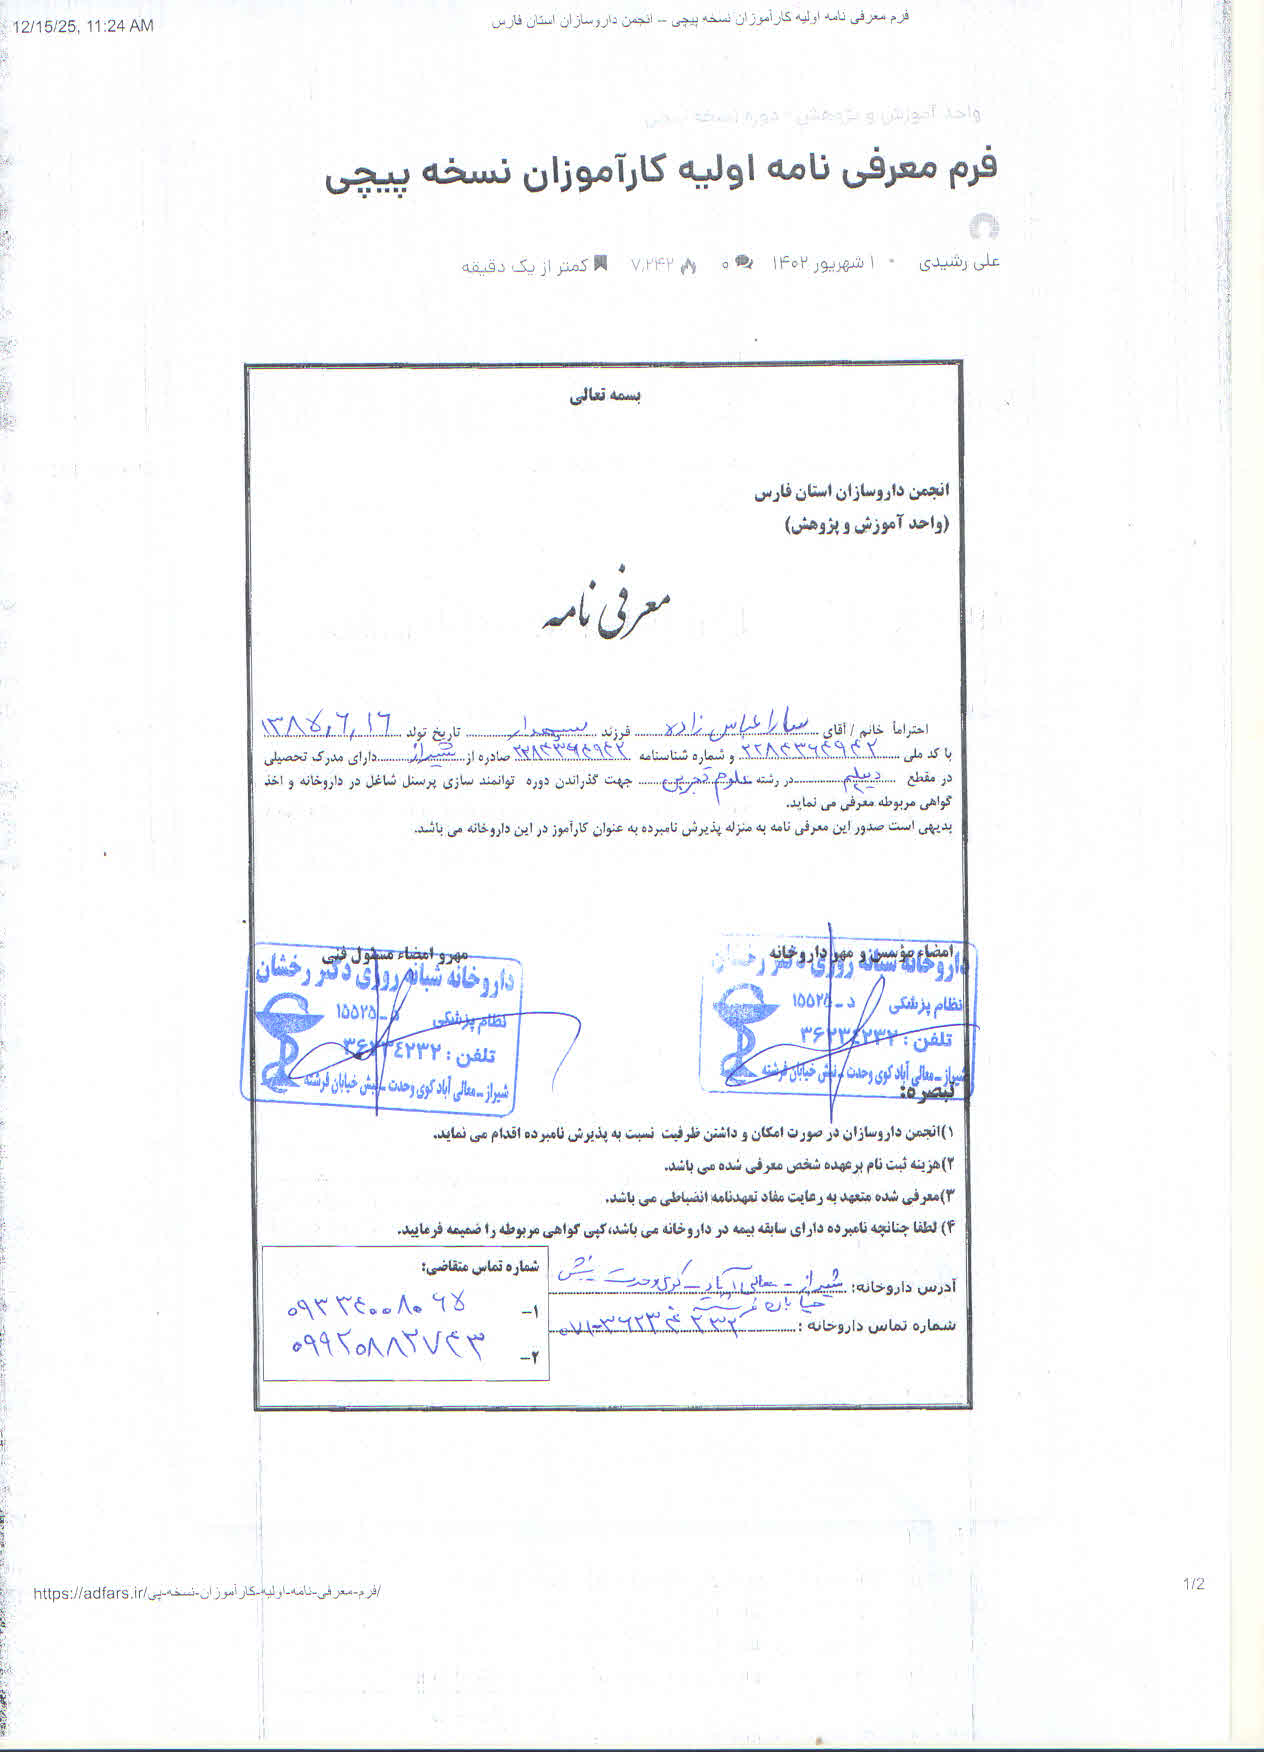 12/15/25, 11:24 AM
فرم معرفی نامه اولیه کارآموزان نسخه پیچی – انجمن داروسازان استان فارس
واحد آموزش و پژوهش
فرم معرفی نامه اولیه کارآموزان نسخه پیچی
علی رشیدی • ۱ شهریور ۱۴۰۲ ۰ ۷,۲۴۲ کمتر از یک دقیقه
بسمه تعالی
انجمن داروسازان استان فارس
(واحد آموزش و پژوهش)
معرفی نامه
احتراماً خانم / آقای سارا عباس زاده فرزند تاریخ تولد
با کد ملی ۲۲۸۴۳۶۴۹۴۲ و شماره شناسنامه ۲۲۸۴۳۶۴۹۴۲ صادره از شیراز دارای مدرک تحصیلی
در مقطع دیپلم در رشته علوم تجربی جهت گذراندن دوره توانمند سازی پرسنل شاغل در داروخانه و اخذ
گواهی مربوطه معرفی می نماید.
بدیهی است صدور این معرفی نامه به منزله پذیرش نامبرده به عنوان کارآموز در این داروخانه می باشد.
امضاء مؤسس و مهر داروخانه
داروخانه شبانه روزی دکتر رخشان
نظام پزشکی د ـ ۱۵۵۲۵
تلفن : ۳۶۲۳٤۲۳۲
شیراز ـ معالی آباد کوی وحدت ـ نبش خیابان فرشته
مهر و امضاء مسئول فنی
داروخانه شبانه روزی دکتر رخشان
نظام پزشکی د ـ ۱۵۵۲۵
تلفن : ۳۶۲۳٤۲۳۲
شیراز ـ معالی آباد کوی وحدت ـ نبش خیابان فرشته
تبصره:
۱)انجمن داروسازان در صورت امکان و داشتن ظرفیت نسبت به پذیرش نامبرده اقدام می نماید.
۲)هزینه ثبت نام برعهده شخص معرفی شده می باشد.
۳)معرفی شده متعهد به رعایت مفاد تعهدنامه انضباطی می باشد.
۴) لطفا چنانچه نامبرده دارای سابقه بیمه در داروخانه می باشد،کپی گواهی مربوطه را ضمیمه فرمایید.
آدرس داروخانه: شیراز - معالی آباد - کوی وحدت نبش
خیابان فرشته
شماره تماس داروخانه : ۰۷۱-۳۶۲۳۴۲۳۲
شماره تماس متقاضی:
۱–
۲– ۰۹۹۲۰۸۸۲۷۴۳
https://adfars.ir/فرم-معرفی-نامه-اولیه-کارآموزان-نسخه-پی/
1/2